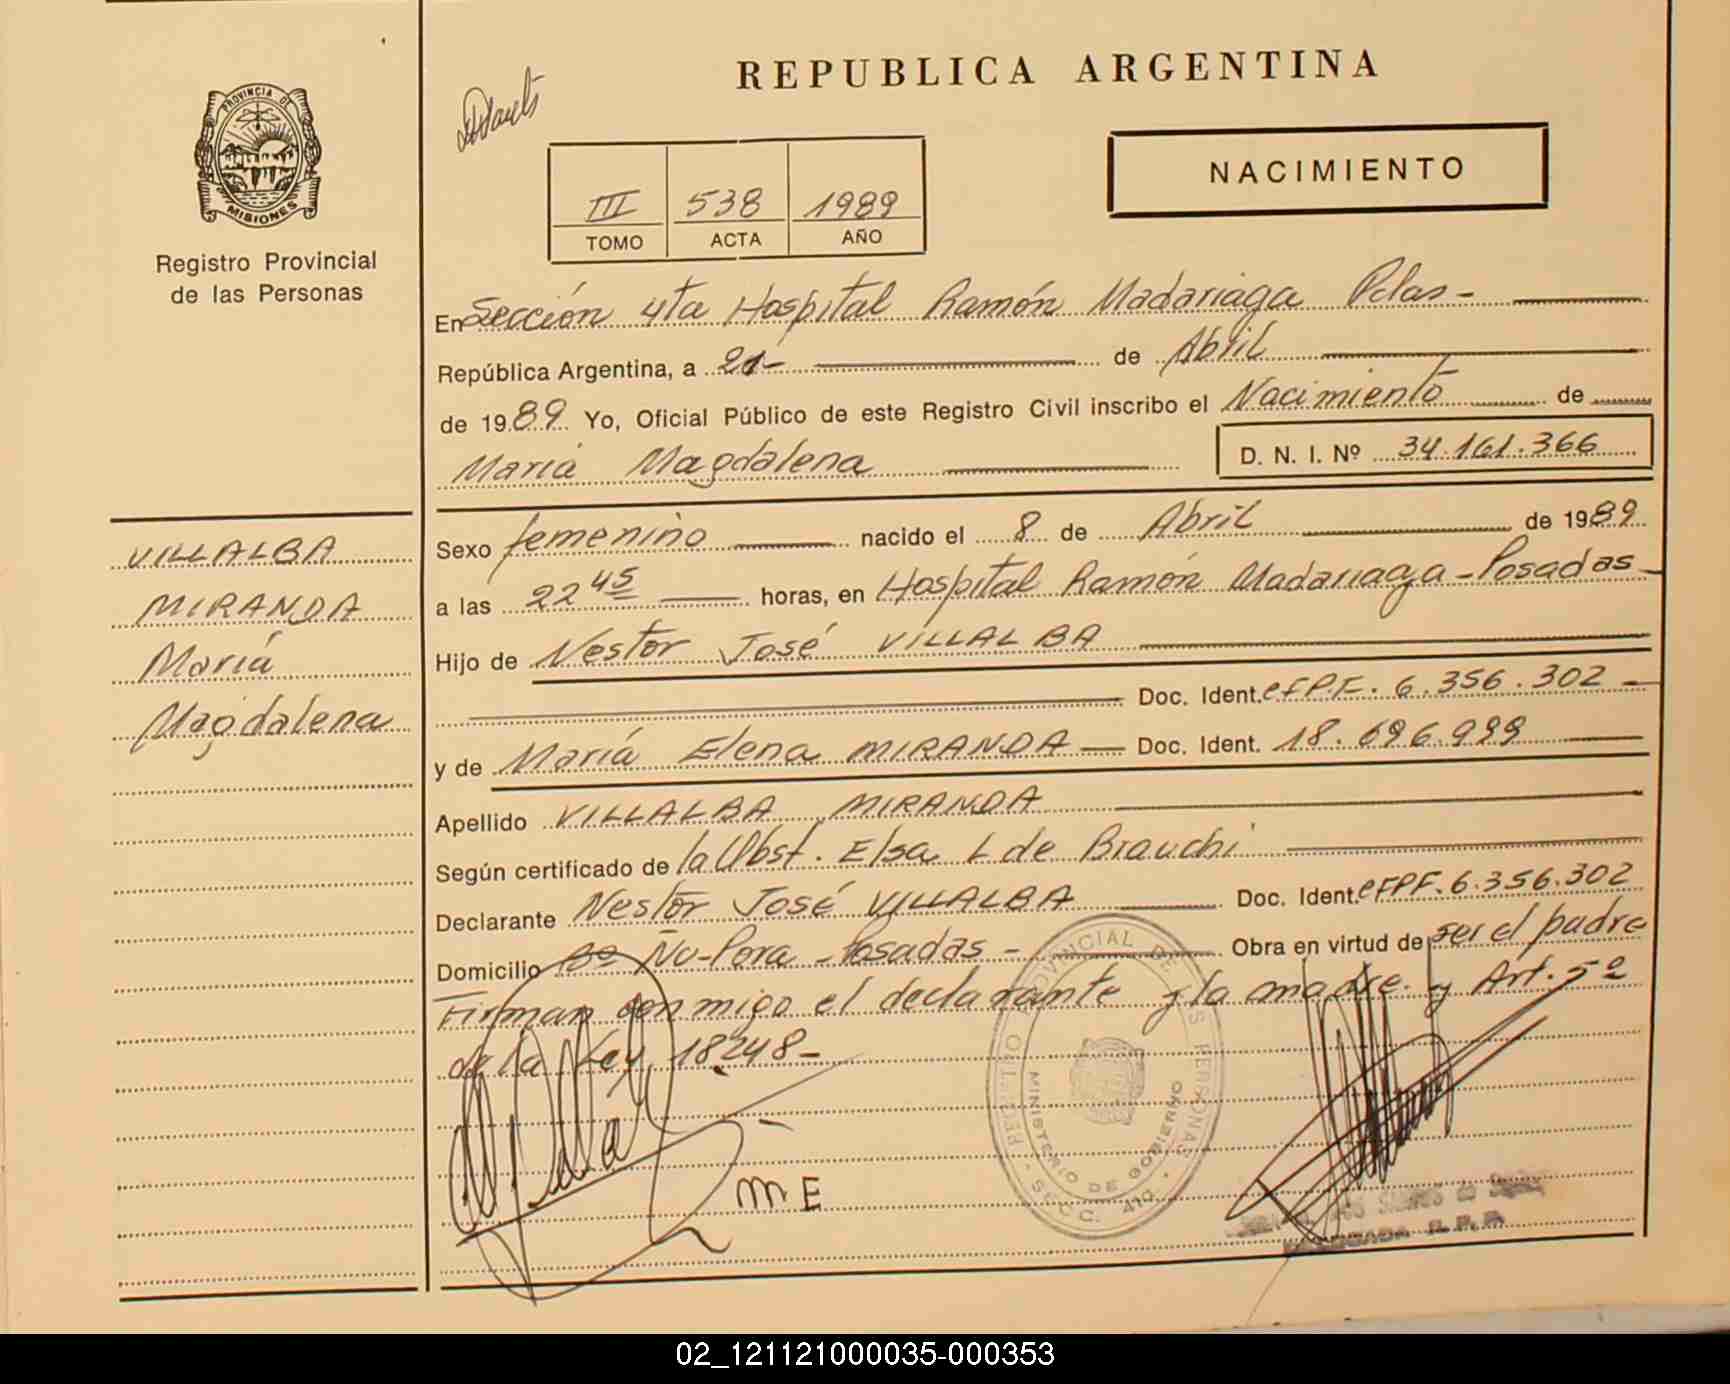 REPUBLICA ARGENTINA
PROVINCIA DE
MISIONES
Registro Provincial
de las Personas
NACIMIENTO
III 538 1989
TOMO ACTA AÑO
En Sección 4ta Hospital Ramón Madariaga Pdas-
República Argentina, a 21- de Abril
de 1989 Yo, Oficial Público de este Registro Civil inscribo el Nacimiento de
María Magdalena D. N. I. Nº 34.161.366
VILLALBA
MIRANDA
María
Magdalena
Sexo femenino nacido el 8 de Abril de 1989
a las 22 45 horas, en Hospital Ramón Madariaga-Posadas
Hijo de Nestor José VILLALBA
Doc. Ident. CFPF. 6.356.302
y de María Elena MIRANDA Doc. Ident. 18.696.999
Apellido VILLALBA MIRANDA
Según certificado de la Obst. Elsa L de Brauchi
Declarante Nestor José VILLALBA Doc. Ident. CFPF. 6.356.302
Domicilio Bº Ñu-Pora -Posadas- Obra en virtud de ser el padre
Firman conmigo el declarante y la madre. y Art. 5º
de la Ley 18248-
REGISTRO PROVINCIAL DE LAS PERSONAS
MINISTERIO DE GOBIERNO
SECC. 4ta.
M E
DELEGADA R. P. P.
02_121121000035-000353